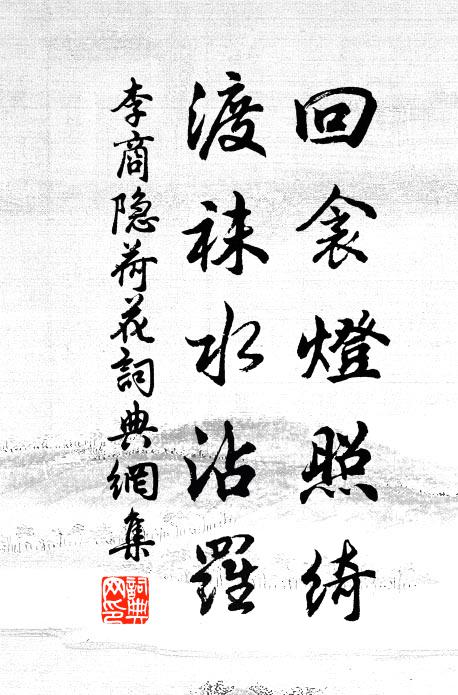 回衾燈照綺
渡袜水沾羅
李商隐荷花詞典網集
詞典网印